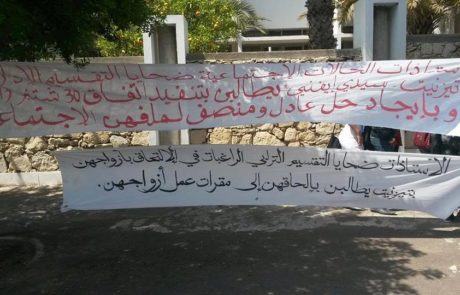 ستاذات الحالات الاجتماعية ضحايا التقسيم الإدا
تيزنيت - سيدي إفني يطالبن بتنفيذ اتفاق 30 شتنبر
و بإيجاد حل عادل ومنصف لملفهن الاجتماعي
الأستاذات ضحايا التقسيم الترابي الراغبات في الالتحاق بأزواجهن
بتيزنيت يطالبن بإلحاقهن إلى مقرات عمل أزواجهن.